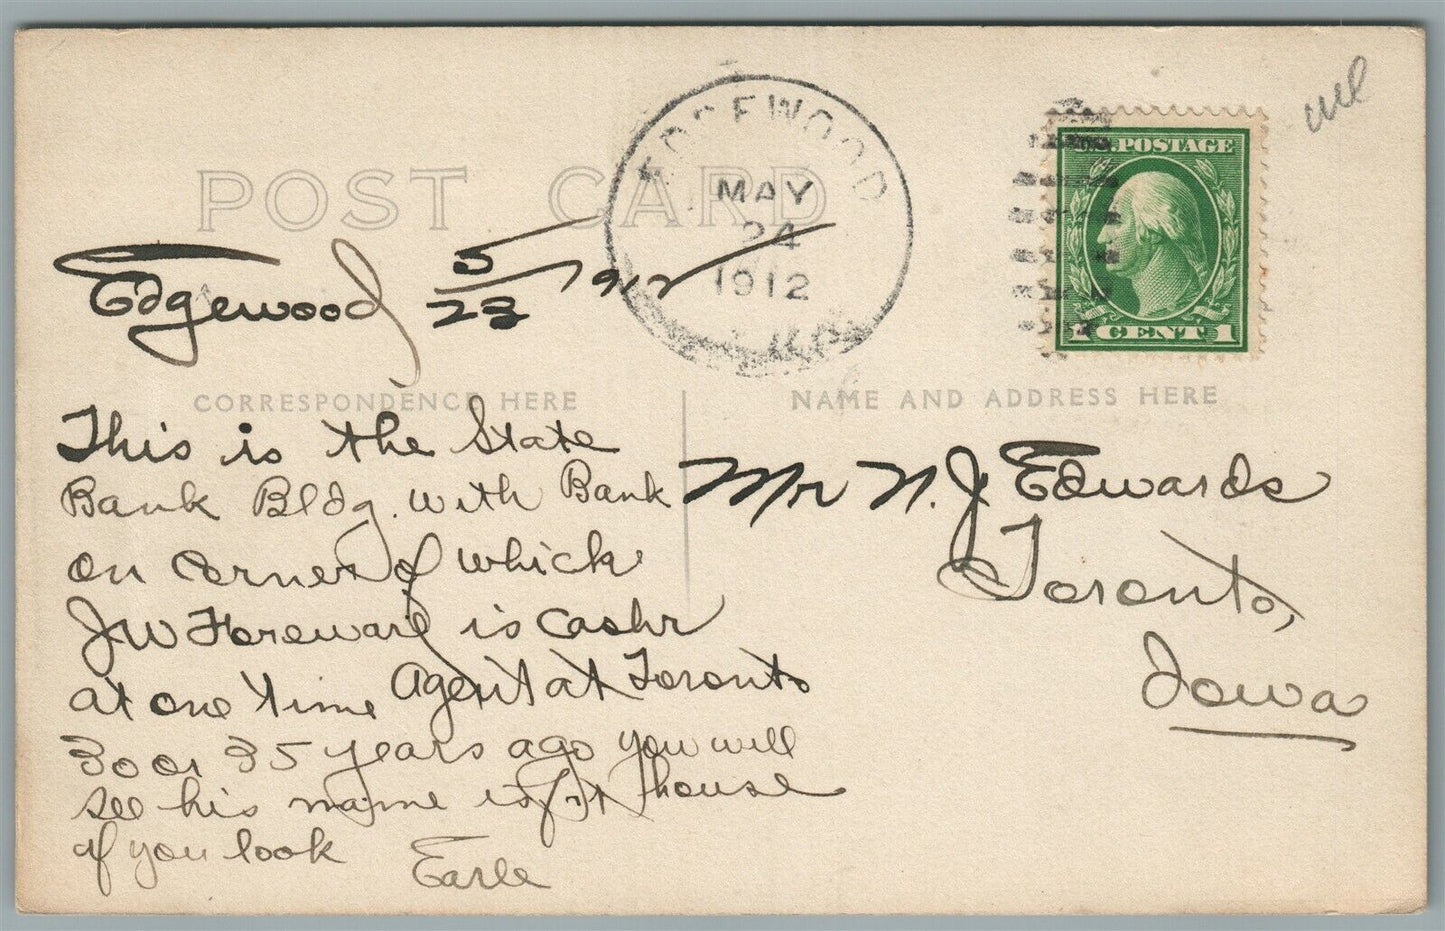 POST CARD
EDGEWOOD
MAY
24
1912
POSTAGE
1 CENT 1
Edgewood 5/23 1912
CORRESPONDENCE HERE
NAME AND ADDRESS HERE
This is the State
Bank Bldg. with Bank
on corner of which
JW Foreward is Cashr
at one time Agent at Toronto
30 or 35 years ago you will
see his name in house
if you look
Earle
Mr N. J. Edwards
Toronto,
Iowa